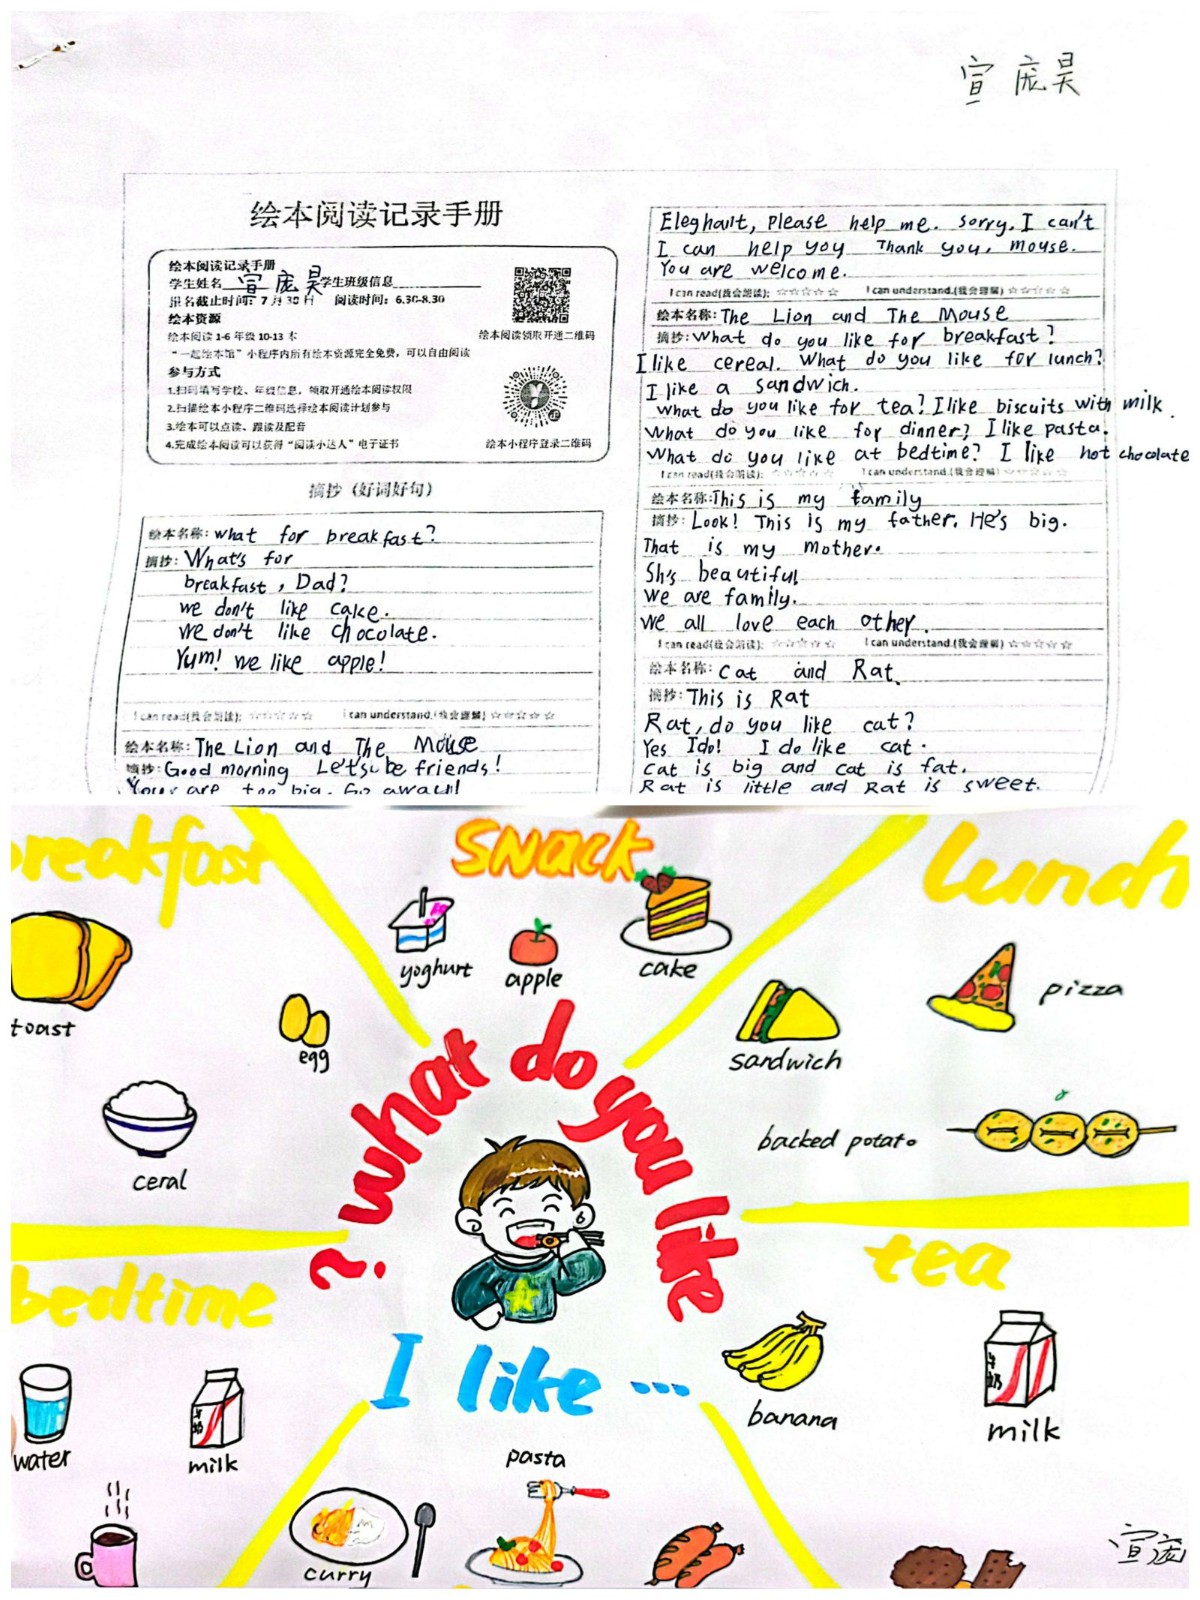 宣庞昊
绘本阅读记录手册
绘本阅读记录手册
学生姓名 宣庞昊 学生班级信息
报名截止时间：7月30日 阅读时间：6.30-8.30
绘本资源
绘本阅读1-6年级10-13本
“一起绘本馆”小程序内所有绘本资源完全免费，可以自由阅读
参与方式
1.扫码填写学校、年级信息，领取开通绘本阅读权限
2.扫描绘本小程序二维码选择绘本阅读计划参与
3.绘本可以点读、跟读及配音
4.完成绘本阅读可以获得“阅读小达人”电子证书
绘本阅读领取开通二维码
绘本小程序登录二维码
摘抄（好词好句）
绘本名称: what for breakfast?
摘抄: What's for
breakfast, Dad?
we don't like cake.
we don't like chocolate.
Yum! we like apple!
I can read(我会朗读): ☆☆☆☆☆ I can understand.(我会理解) ☆☆☆☆☆
绘本名称: The Lion and The Mouse
摘抄: Good morning Let's be friends!
Your are too big. Go away!
Eleghant, please help me. sorry. I can't
I can help yoy Thank you, mouse.
You are welcome.
I can read(我会朗读): ☆☆☆☆☆ I can understand.(我会理解) ☆☆☆☆☆
绘本名称: The Lion and The Mouse
摘抄: what do you like for breakfast?
I like cereal. What do you like for lunch?
I like a sandwich.
what do you like for tea? I like biscuits with milk.
What do you like for dinner? I like pasta.
What do you like at bedtime? I like hot chocolate
I can read(我会朗读): ☆☆☆☆☆ I can understand.(我会理解) ☆☆☆☆☆
绘本名称: This is my family
摘抄: Look! This is my father. He's big.
That is my mother.
Sh's beautiful
We are family.
we all love each other.
I can read(我会朗读): ☆☆☆☆☆ I can understand.(我会理解) ☆☆☆☆☆
绘本名称: Cat and Rat.
摘抄: This is Rat
Rat, do you like cat?
Yes Ido! I do like cat.
Cat is big and cat is fat.
Rat is little and Rat is sweet.
breakfast
toast
egg
ceral
snack
yoghurt
apple
cake
lunch
pizza
sandwich
backed potato
what do you like?
I like ...
bedtime
water
milk
牛奶
tea
banana
milk
牛奶
pasta
curry
宣庞